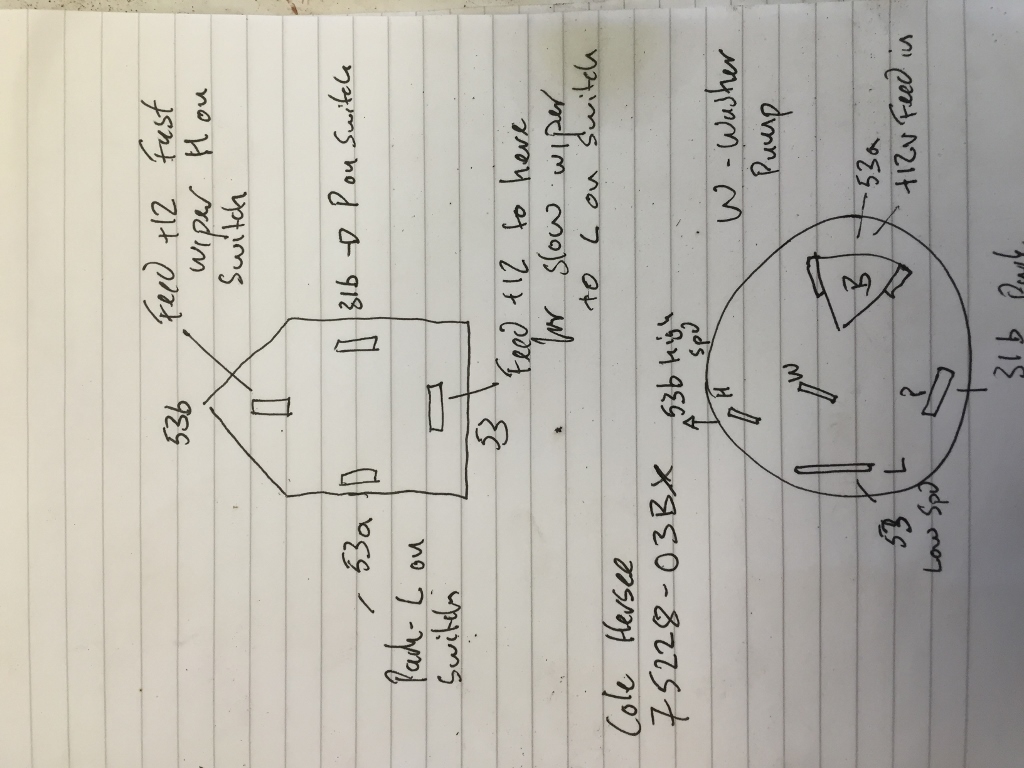 Feed +12 Fast
wiper H on
switch
53b
53a
31b → P on switch
Park - L on
switch
53
Feed +12 to here
for slow wiper
to L on switch
Cole Hersee
75228-03BX
53b High
spd
W - Washer
Pump
H
W
B
53a
+12v Feed in
L
P
53
Low Spd
31b Park